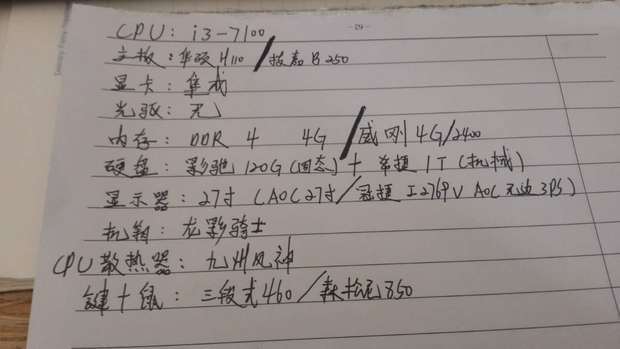 -29-
CPU: i3-7100
主板: 华硕 H110 / 技嘉 B250
显卡: 集成
光驱: 无
内存: DDR 4 4G / 威刚 4G/2400
硬盘: 影驰 120G (固态) + 希捷 1T (机械)
显示器: 27寸 (AOC 27寸 / 冠捷 I2769V AOC 无边 IPS)
机箱: 龙影骑士
CPU散热器: 九州风神
键+鼠: 三段式460 / 森松尼850